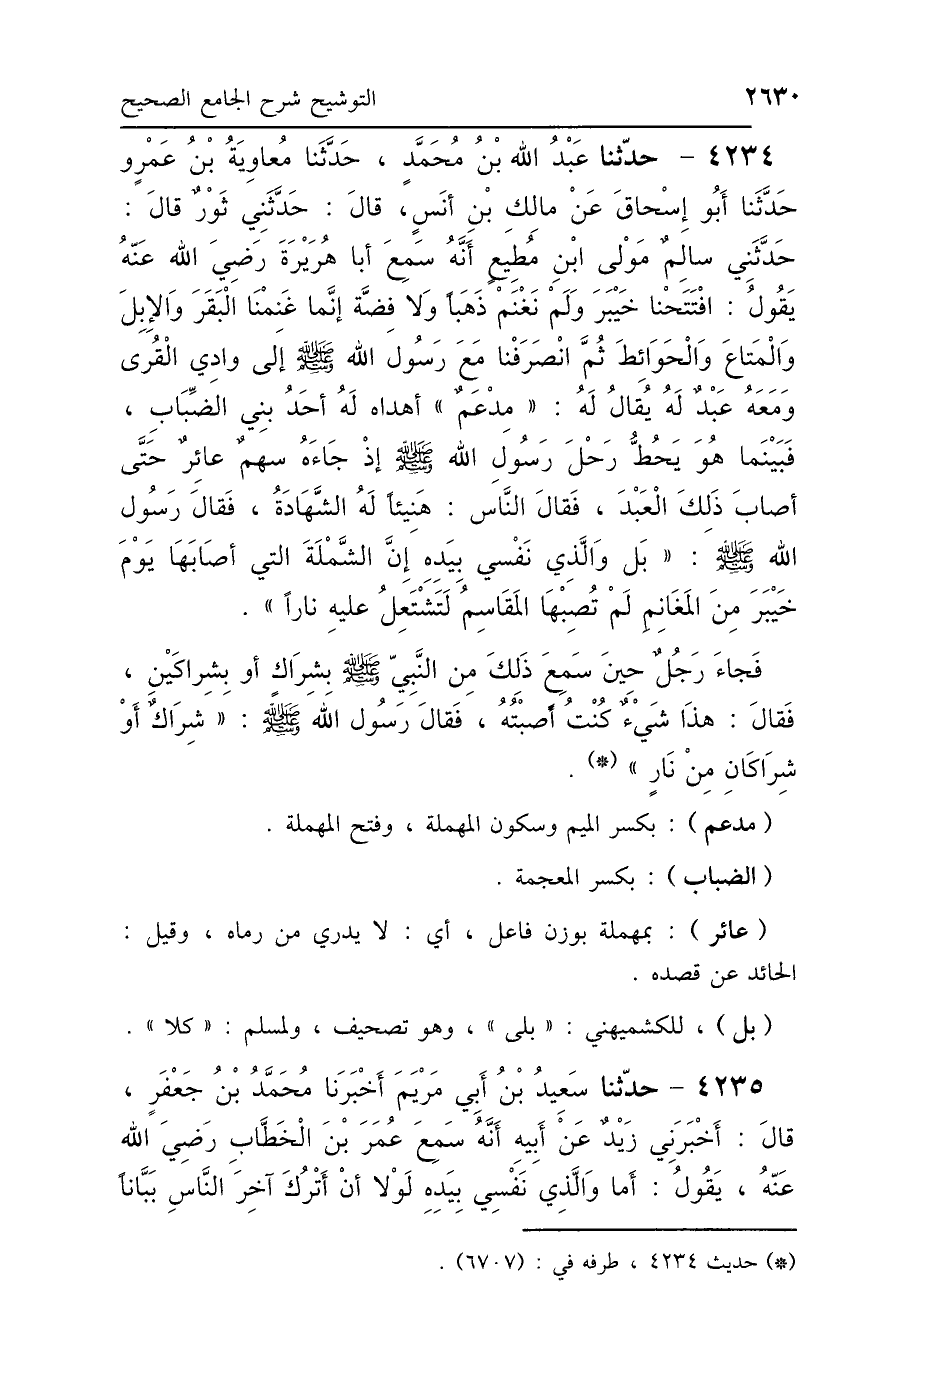 ٢٦٣٠ التوشيح شرح الجامع الصحيح
٤٢٣٤ - حدّثنا عَبْدُ الله بْنُ مُحَمَّدٍ ، حَدَّثَنا مُعاوِيَةُ بْنُ عَمْرٍو
حَدَّثَنا أَبُو إسْحاقَ عَنْ مالِكِ بْنِ أنَسٍ، قالَ : حَدَّثَنِي ثَوْرٌ قالَ :
حَدَّثَنِي سالِمٌ مَوْلى ابْنِ مُطِيعٍ أَنَّهُ سَمِعَ أبا هُرَيْرَةَ رَضِيَ الله عَنْهُ
يَقُولُ : افْتَتَحْنا خَيْبَرَ وَلَمْ نَغْنَمْ ذَهَباً وَلا فِضَّة إنَّما غَنِمْنا الْبَقَرَ وَالإِبِلَ
وَالْمَتاعَ وَالْحَوَائِطَ ثُمَّ انْصَرَفْنا مَعَ رَسُولِ الله ﷺ إلى وادِي الْقُرى
وَمَعَهُ عَبْدٌ لَهُ يُقالُ لَهُ : « مِدْعَمٌ » أهداه لَهُ أحَدُ بنِي الضِّبَابِ ،
فَبَيْنَما هُوَ يَحُطُّ رَحْلَ رَسُولِ الله ﷺ إذْ جَاءَهُ سهمٌ عائِرٌ حَتَّى
أصابَ ذَلِكَ الْعَبْدَ ، فَقالَ النَّاس : هَنِيئاً لَهُ الشَّهَادَةُ ، فَقالَ رَسُول
الله ﷺ : « بَل وَالَّذِي نَفْسي بِيَدِهِ إنَّ الشَّمْلَةَ التي أصابَهَا يَوْمَ
خَيْبَرَ مِنَ المَغَانِمِ لَمْ تُصِبْهَا المَقَاسِمُ لَتَشْتَعِلُ عليهِ ناراً » .
فَجاءَ رَجُلٌ حِينَ سَمِعَ ذَلِكَ مِن النَّبِيّ ﷺ بِشِرَاكٍ أو بِشِراكَيْنِ ،
فَقالَ : هذَا شَيْءٌ كُنْتُ أَصبْتُهُ ، فَقالَ رَسُول الله ﷺ : « شِرَاكٌ أَوْ
شِرَاكَانِ مِنْ نَارٍ » (*) .
( مدعم ) : بكسر الميم وسكون المهملة ، وفتح المهملة .
( الضباب ) : بكسر المعجمة .
( عائر ) : بمهملة بوزن فاعل ، أي : لا يدري من رماه ، وقيل :
الحائد عن قصده .
( بل ) ، للكشميهني : « بلى » ، وهو تصحيف ، ولمسلم : « كلا » .
٤٢٣٥ - حدّثنا سَعِيدُ بْنُ أَبِي مَرْيَمَ أَخْبَرَنَا مُحَمَّدُ بْنُ جَعْفَرٍ ،
قالَ : أَخْبَرَنِي زَيْدٌ عَنْ أَبِيهِ أَنَّهُ سَمِعَ عُمَرَ بْنَ الْخَطَّابِ رَضِيَ الله
عَنْهُ ، يَقُولُ : أَما وَالَّذِي نَفْسِي بِيَدِهِ لَوْلا أنْ أَتْرُكَ آخِرَ النَّاسِ بَبَّاناً
(*) حديث ٤٢٣٤ ، طرفه في : (٦٧٠٧) .